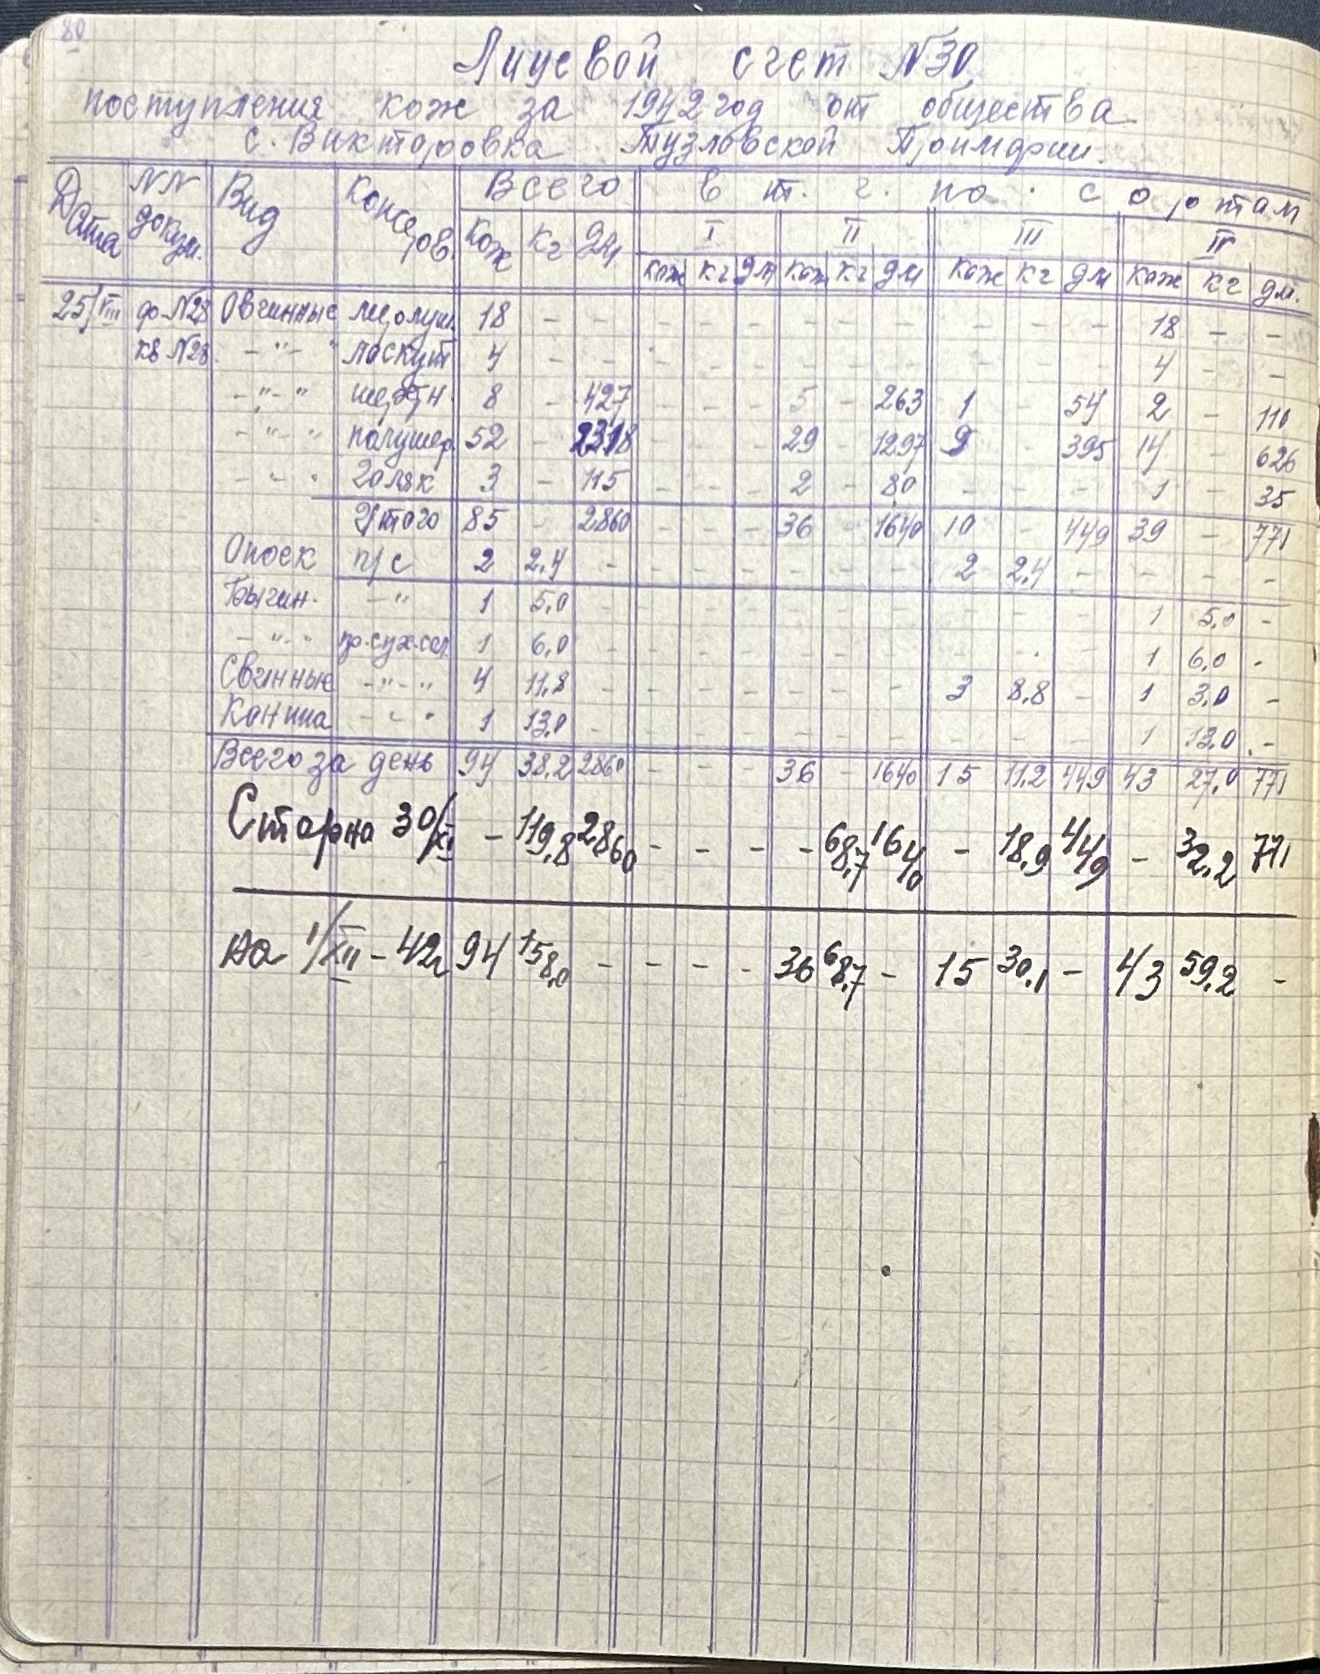 80
Лицевой счет №30
поступления кож за 1942 год от общества
с. Викторовка Тузловской Примарии.
Дата №№ докум. Вид Консе ров. Всего в т. ч. по сортам
Кож кг дм I II III IV
кож кг дм кож кг дм кож кг дм кож кг дм.
25/VIII ф. №28 Овчинные 18 – – – – – – – – – – – 18 – –
кв №28 – " – " лоскут 4 – – – – – – – – – – – 4 – –
– " – " шерстн. 8 – 427 – – – 5 – 263 1 – 54 2 – 110
– " – " полушер. 52 – 2318 – – – 29 – 1297 9 – 395 14 – 626
– " – " голяк 3 – 115 – – – 2 – 80 – – – 1 – 35
Итого 85 – 2860 – – – 36 – 1640 10 – 449 39 – 771
Опоек п/с 2 2,4 – – – – – – – 2 2,4 – – – –
Бычин. – " 1 5,0 – – – – – – – – – – 1 5,0 –
– " – " пр. сух. сол. 1 6,0 – – – – – – – – – – 1 6,0 –
Свинные – " – " 4 11,8 – – – – – – – 3 8,8 – 1 3,0 –
Конина – " – " 1 13,0 – – – – – – – – – – 1 13,0 –
Всего за день 94 38,2 2860 – – – 36 – 1640 15 11,2 449 43 27,0 771
Старно 30/XI – 119,8 2860 – – – – 68,7 1640 – 18,9 449 – 32,2 771
На 1/XII – 42г 94 158,0 – – – – 36 68,7 – 15 30,1 – 43 59,2 –